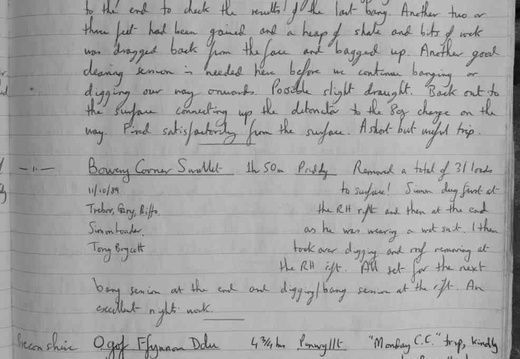 to the end to check the results of the last bang. Another two or
three feet had been gained and a heap of shale and bits of rock
was dragged back from the face and bagged up. Another good
clearing session is needed here before we continue banging or
digging our way onwards. Possible slight draught. Back out to
the surface connecting up the detonator to the 8oz charge on the
way. Fired satisfactorily from the surface. A short but useful trip.
— " — Bowery Corner Swallet 1h 50m Priddy Removed a total of 31 loads
11/10/89 to surface! Simon dug first at
Trebor, Gary, Biffo, the RH rift and then at the end
Simon as he was wearing a wet suit. I then
Tony took over digging and roof removing at
the RH rift. All set for the next
bang session at the end and digging/bang session at the rift. An
excellent night's work.
Breconshire Ogof Ffynnon Ddu 4¾ hrs Penwyllt "Monday C.C." trip, kindly